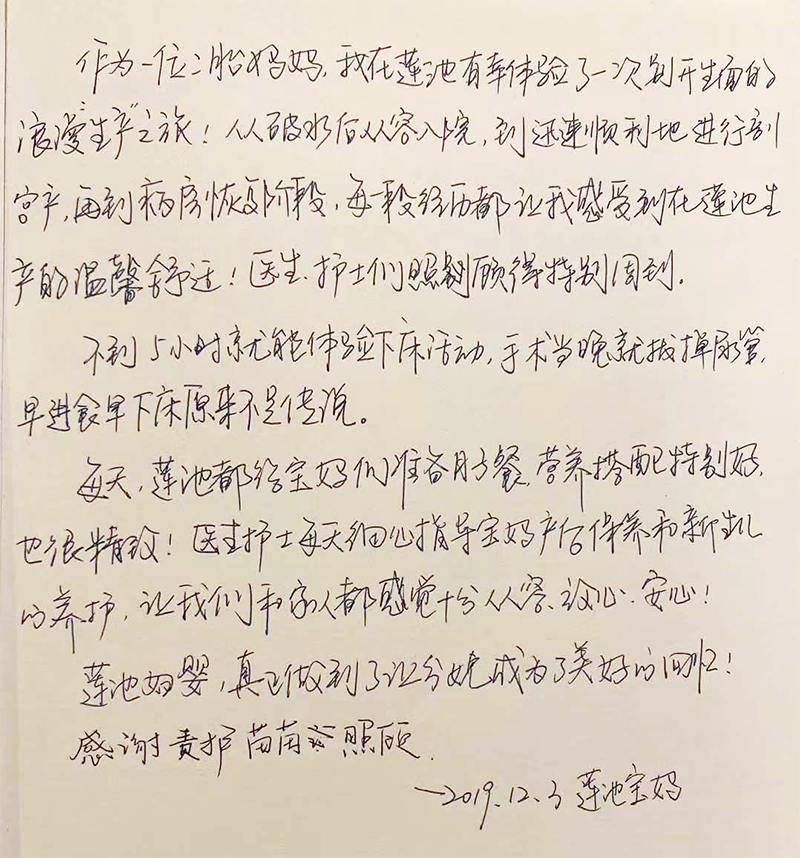 作为一位二胎妈妈，我在莲池有幸体验了一次别开生面的
浪漫“生产”之旅！从破水后从容入院，到迅速顺利地进行剖
宫产，再到病房恢复阶段，每一段经历都让我感受到在莲池生
产的温馨舒适！医生、护士们照顾得特别周到。
不到5小时就能体验下床活动，手术当晚就拔掉尿管，
早进食早下床原来不是传说。
每天，莲池都给宝妈们准备月子餐，营养搭配特别好，
也很精致！医生护士每天细心指导宝妈产后保养和新生儿
的养护，让我们和家人都感觉十分从容、放心、安心！
莲池妇婴，真正做到了让分娩成为了美好的回忆！
感谢责护苗苗 照顾.
→2019.12.3 莲池宝妈